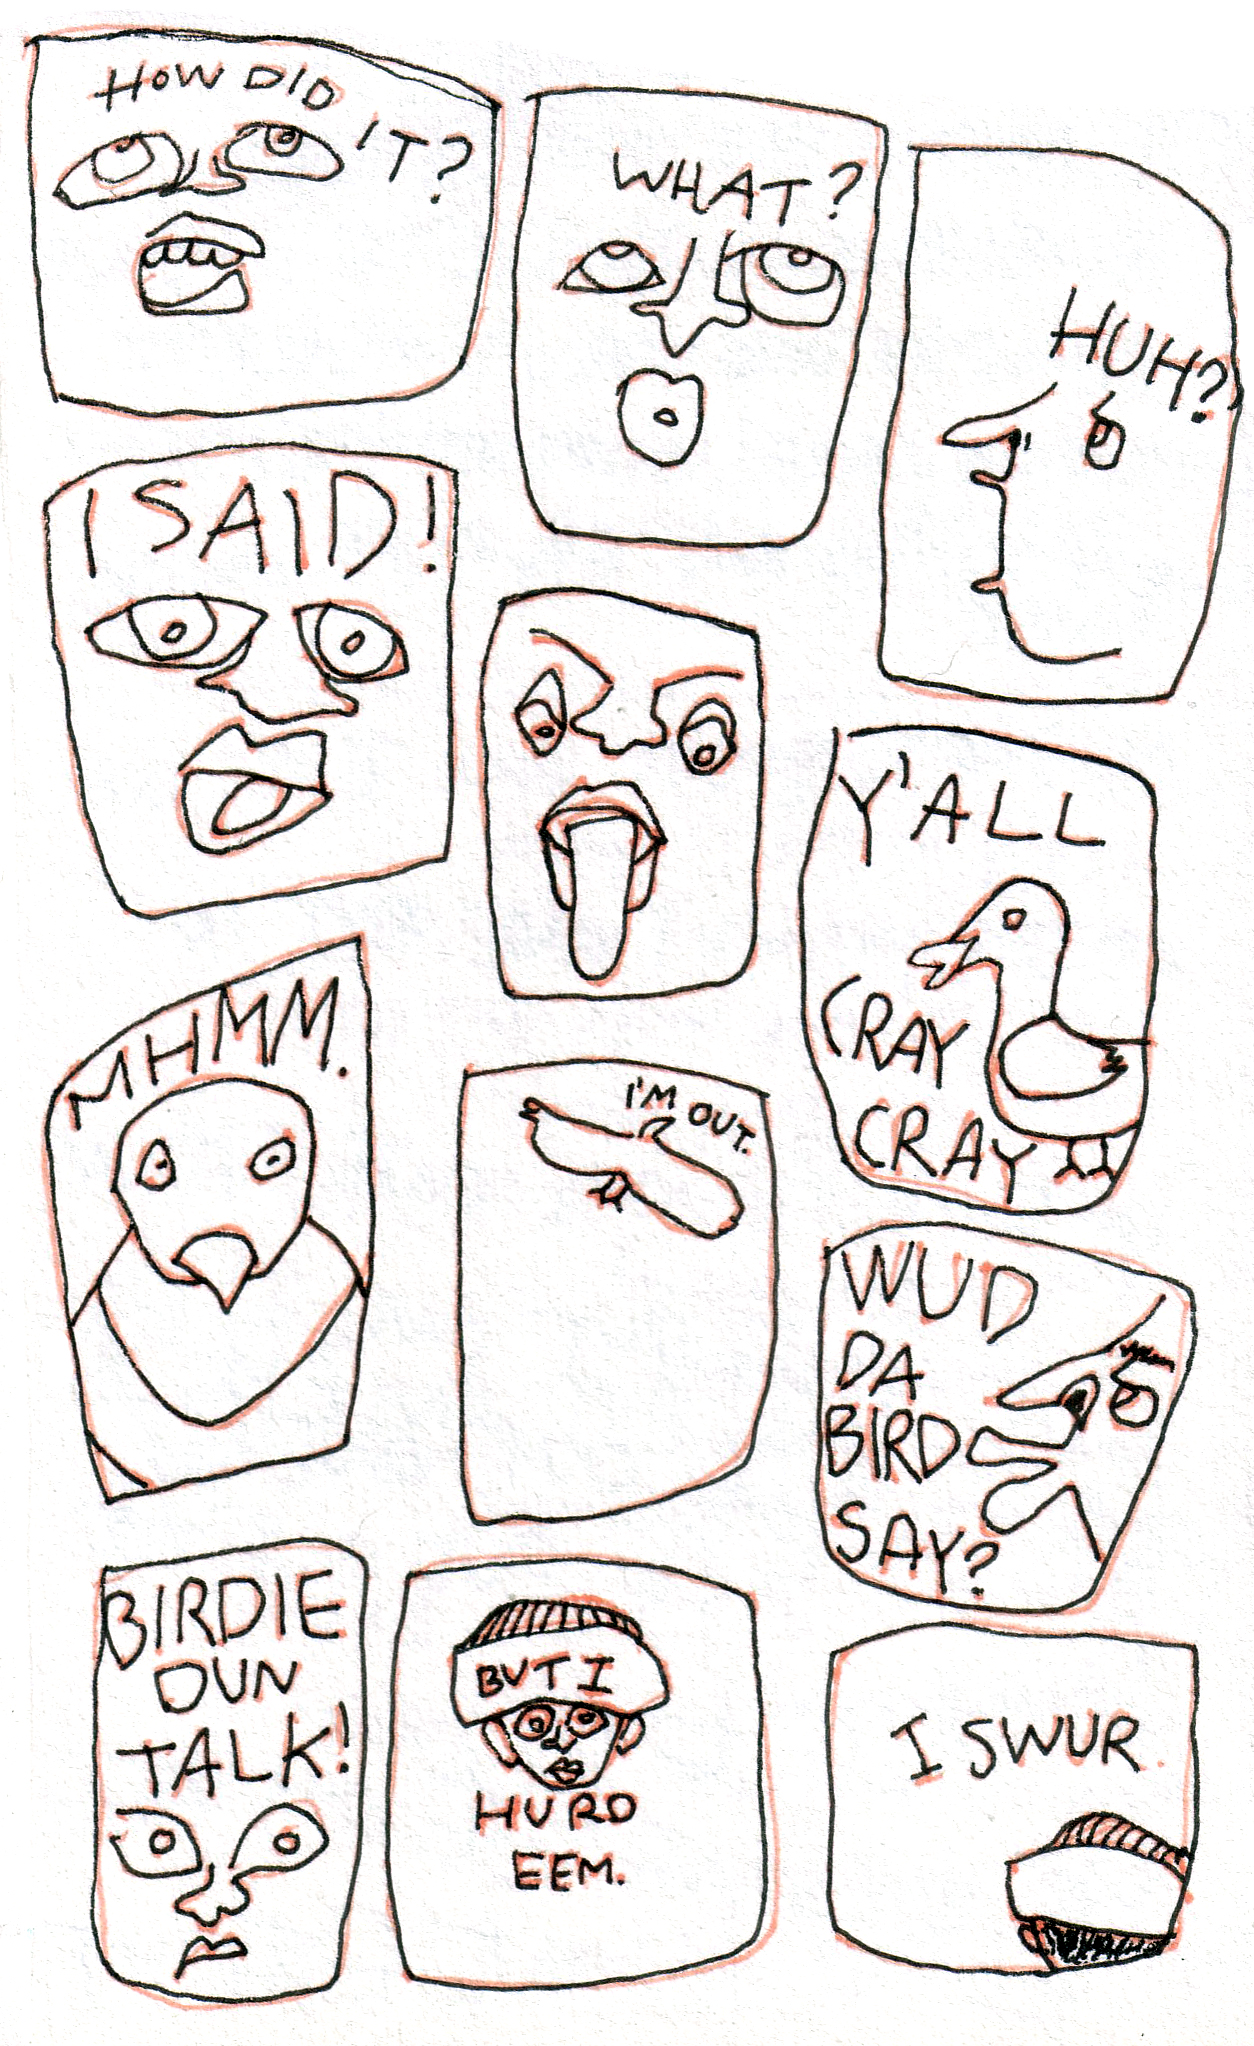 HOW DID
'T?
WHAT?
HUH?
I SAID!
Y'ALL
CRAY
CRAY
MHMM.
I'M OUT.
WUD
DA
BIRD
SAY?
BIRDIE
DUN
TALK!
BUT I
HURD
EEM.
I SWUR.